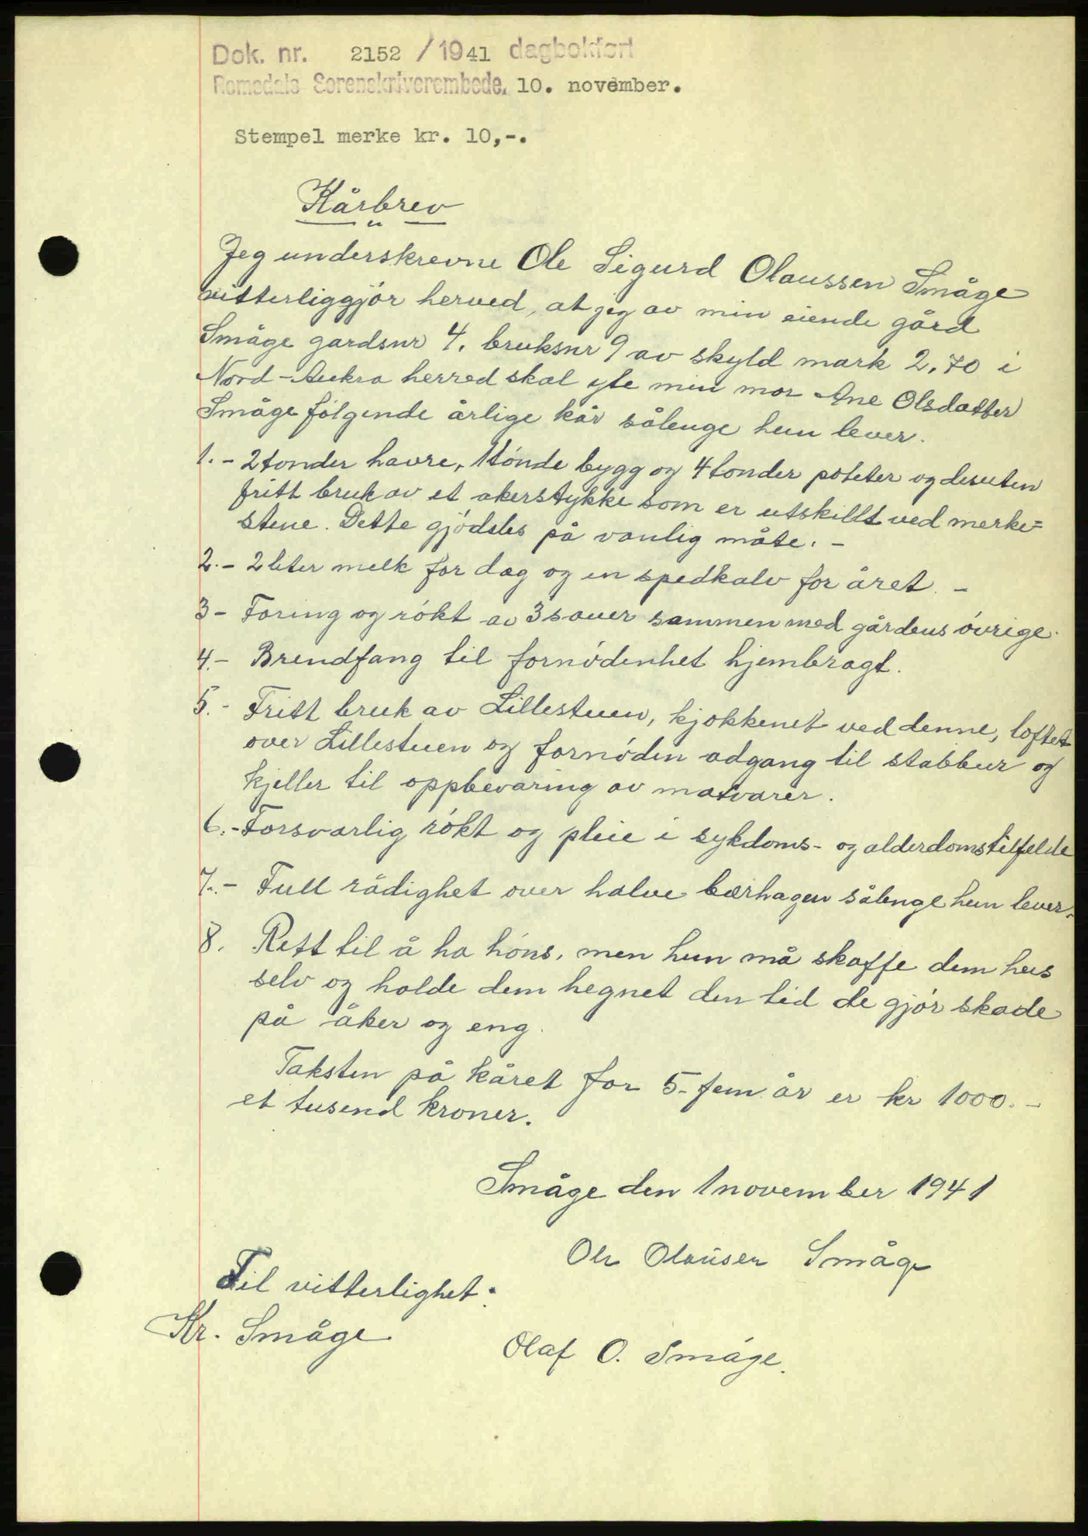 Dok. nr. 2152 / 1941 dagbokført
Romsdals Sorenskriverembede, 10. november.
Stempel merke kr. 10,-.
Kårbrev
Jeg underskrevne Ole Sigurd Olaussen Småge
vitterliggjör herved, at jeg av min eiende gård
Småge gardsnr 4. bruksnr 9 av skyld mark 2,70 i
Nord-Aukra herred skal yte min mor Ane Olsdatter
Småge følgende årlige kår sålenge hun lever.
1.- 2 tonder havre, 1 tönde bygg og 4 tonder poteter og desuten
fritt bruk av et akerstykke som er utskillt ved merke=
stene. Dette gjödsles på vanlig måte. -
2.- 2 liter melk for dag og en spedkalv for året. -
3- Foring og rökt av 3 sauer sammen med gårdens övrige.
4.- Brendfang til fornödenhet hjembragt.
5.- Fritt bruk av Lillestuen, kjokkenet ved denne, loftet
over Lillestuen og fornöden adgang til stabbur og
kjeller til oppbevaring av matvarer.
6.- Forsvarlig rökt og pleie i sykdoms- og alderdomstilfelde
7.- Full rådighet over halve bærhagen sålenge hun lever.
8. Rett til å ha höns, men hun må skaffe dem hus
selv og holde dem hegnet den tid de gjör skade
på åker og eng.
Taksten på kåret for 5- fem år er kr 1000.-
et tusend kroner.
Småge den 1 november 1941
Ole Olausen Småge
Til vitterlighet:
Kr. Småge
Olaf O. Småge.